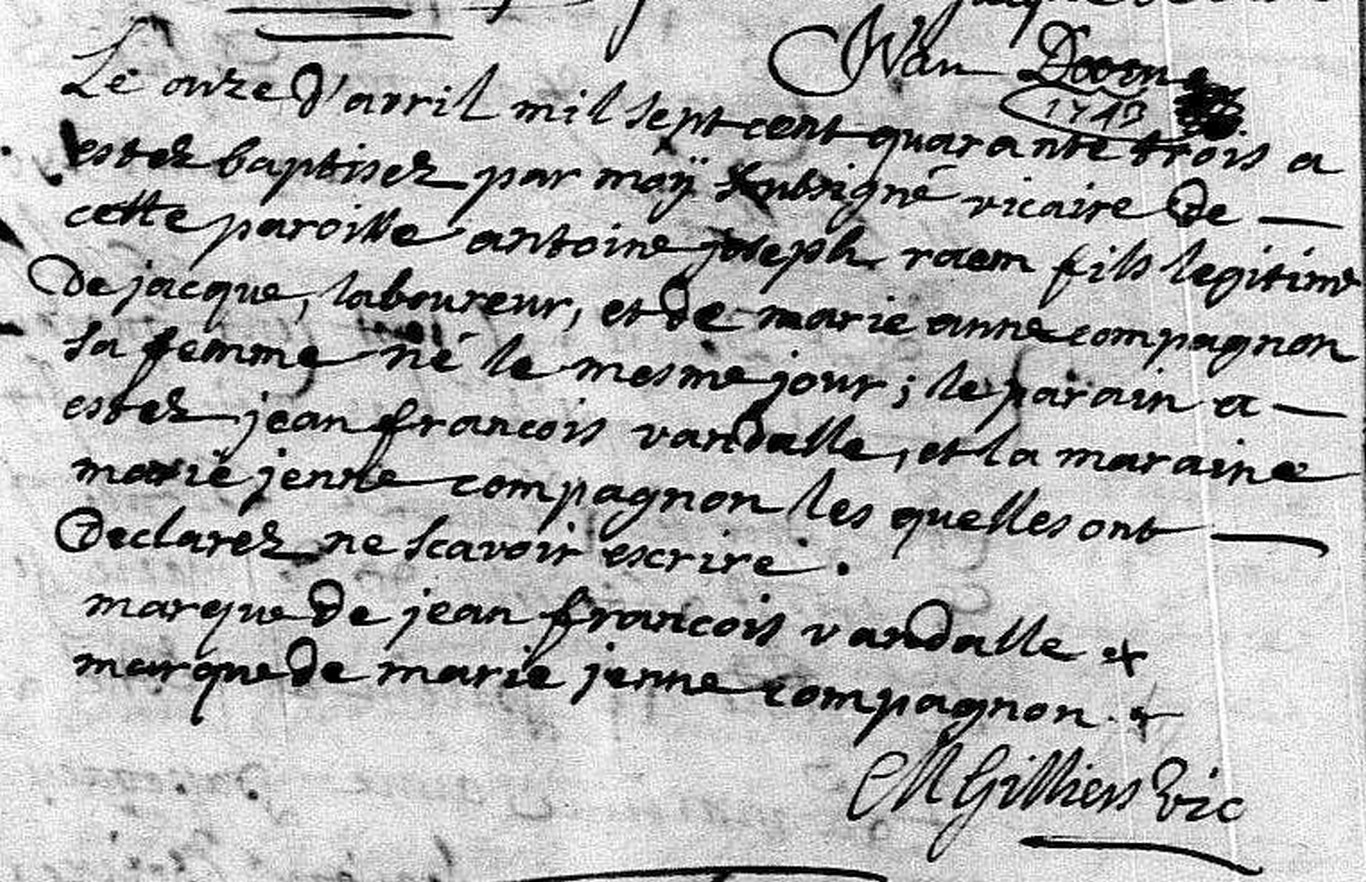 Wan Dooren
1743
Le onze d'avril mil sept cent quarante trois a
estez baptisez par moÿ subsigné vicaire de
cette paroisse antoine joseph raem fils legitime
De jacque, laboureur, et de marie anne compagnon
sa femme né le mesme jour ; le parain a
estez jean francois vandalle, et la maraine
marie jenne compagnon les quelles ont
Declarez ne scavoir escrire .
marque de jean francois vandalle x
marque de marie jenne compagnon . x
M Gilliers Vic